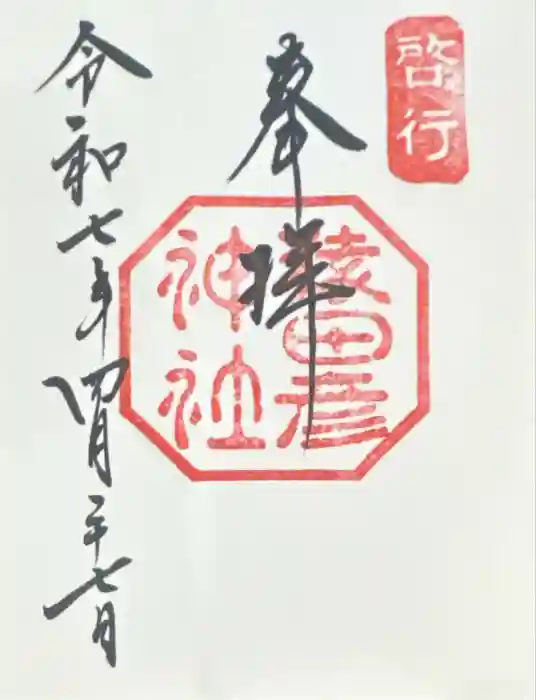 啓行
奉拝
猿田彦
神社
令和七年四月二十七日